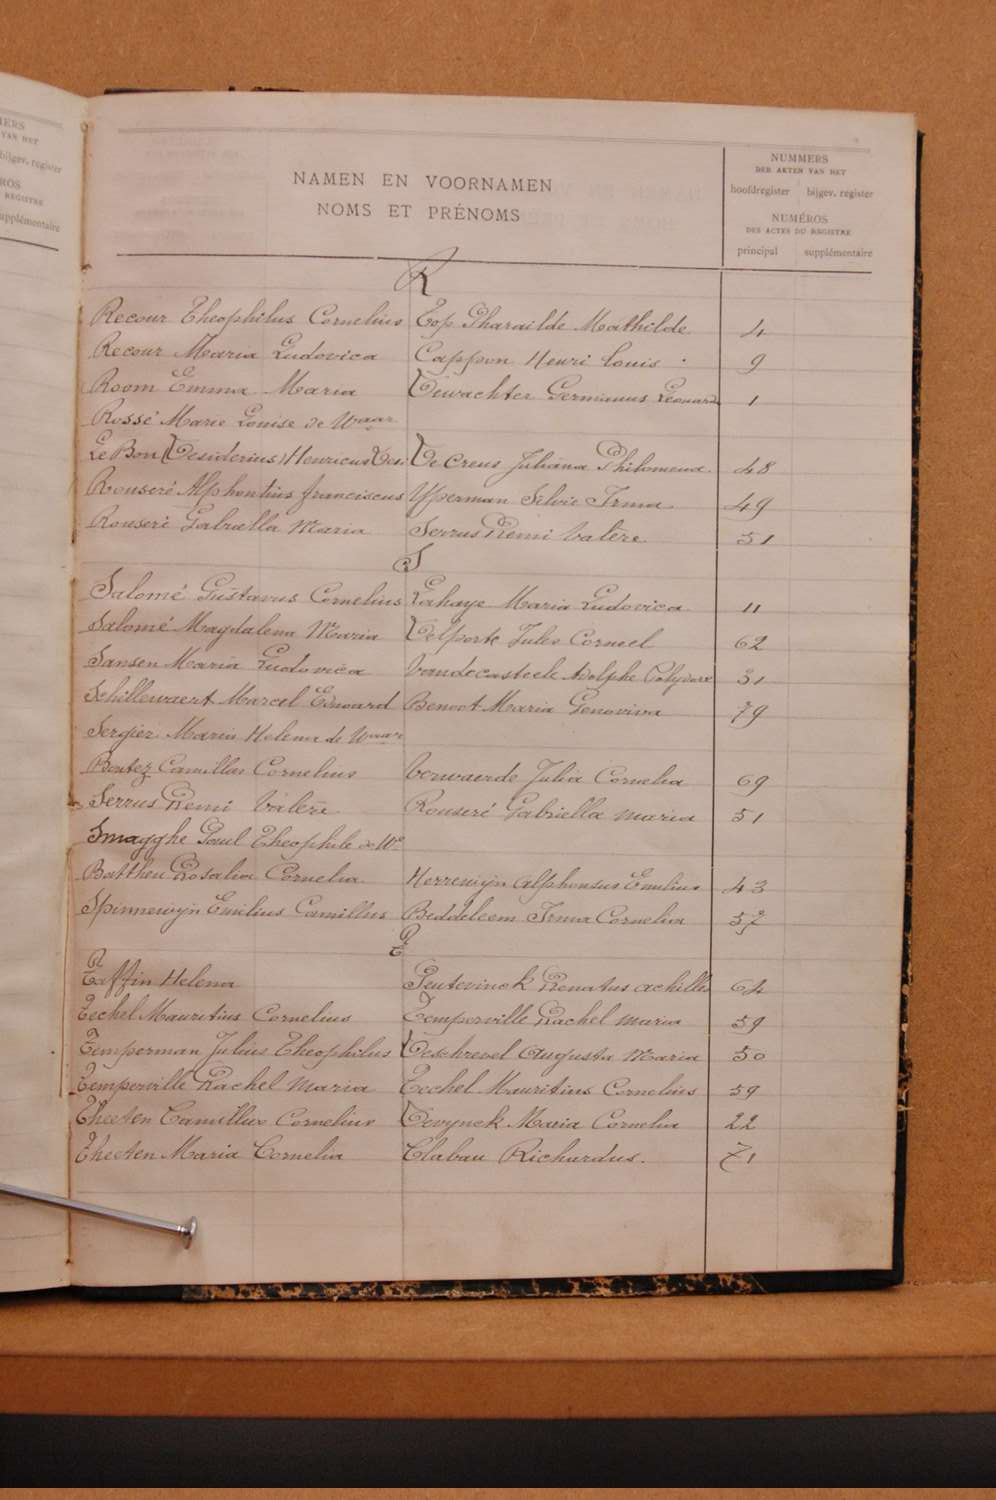 MERS
VAN HET
bijgev. register
ROS
REGISTRE
supplémentaire
NAMEN EN VOORNAMEN
NOMS ET PRÉNOMS
NUMMERS
DER AKTEN VAN HET
hoofdregister bijgev. register
NUMÉROS
DES ACTES DU REGISTRE
principal supplémentaire
R
Recour Theophilus Cornelius Top Pharaïlde Mathilde 4
Recour Maria Ludovica Cappon Henri Louis 9
Room Emma Maria Dewachter Germanus Leonard 1
Rossé Marie Louise de Waar
Le Bon Desiderius Henricus Des. De Creus Juliana Philomena 48
Rouseré Alphontius franciscus Yperman Silvie Irma 49
Rouseré Gabriella Maria Serrus Remi Valère 51
S
Salomé Gustavus Cornelius Lahaye Maria Ludovica 11
Salomé Magdalena Maria Delporte Jules Corneel 62
Sansen Maria Ludovica Vandecasteele Adolphe Polydore 31
Schillewaert Marcel Edouard Benoot Maria Genoviva 79
Sergier Maria Helena de Waar
Boutez Camillus Cornelius Verwaerde Julia Cornelia 69
Serrus Remi Valère Rouseré Gabriella Maria 51
Smagghe Paul Theophile de We
Battheu Rosalia Cornelia Herrewijn Alphonsus Emilius 43
Spinnewijn Emilius Camillus Beddeleem Irma Cornelia 57
T
Taffin Helena Peutevinck Renatus Achilles 64
Techel Mauritius Cornelius Temperville Rachel Maria 59
Temperman Julius Theophilus Deschrevel Augusta Maria 50
Temperville Rachel Maria Techel Mauritius Cornelius 59
Theeten Camillus Cornelius Devynck Maria Cornelia 22
Theeten Maria Cornelia Clabau Richardus. 71